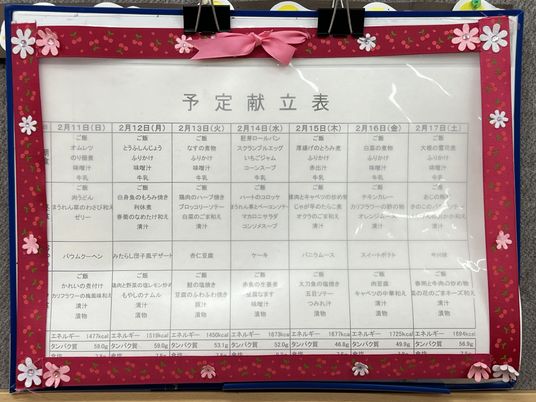 予定献立表
2月11日(日) 2月12日(月) 2月13日(火) 2月14日(水) 2月15日(木) 2月16日(金) 2月17日(土)
ご飯 ご飯 ご飯 胚芽ロールパン ご飯 ご飯 ご飯
オムレツ とうふしんじょう なすの煮物 スクランブルエッグ 厚揚げのとろみ煮 白菜の煮物 大根の雪花煮
のり佃煮 ふりかけ ふりかけ いちごジャム ふりかけ ふりかけ ふりかけ
味噌汁 味噌汁 味噌汁 コーンスープ 赤出汁 味噌汁 味噌汁
牛乳 牛乳 牛乳 牛乳 牛乳 牛乳
肉うどん 白身魚のもろみ焼き 鶏肉のハーブ焼き ハートのコロッケ 豚肉とキャベツの炒め物 チキンカレー
まうれん菜のわさび和え 利休煮 ブロッコリーソテー まうれん草とベーコンソテー じゃが芋のたらこ煮 カリフラワーの酢の物
ゼリー 春菊のなめたけ和え 白菜のごま和え マカロニサラダ オクラのごま和え オレンジムース
漬汁 漬汁 コンソメスープ 漬汁 漬汁
バウムクーヘン みたらし団子風デザート 杏仁豆腐 ケーキ バニラムース スイートポテト
ご飯 ご飯 ご飯 ご飯 ご飯 ご飯 ご飯
かれいの煮付け 鶏肉と野菜の塩レモン炒め 鮭の塩焼き 赤魚の生姜煮 太刀魚の塩焼き 肉豆腐 春雨と牛肉の炒め物
カリフラワーの梅風味和え もやしのナムル 豆腐のふわふわ焼き 豆腐なます 五目ソテー キャベツの中華和え 菜の花のごまネーズ和え
漬汁 漬汁 味噌汁 つみれ汁 漬汁 漬汁
漬物 漬物 漬物 漬物 漬物 漬物
エネルギー 1477kcal エネルギー 1519kcal エネルギー 1450kcal エネルギー 1673kcal エネルギー 1677kcal エネルギー 1725kcal エネルギー 1694kcal
タンパク質 58.0g タンパク質 59.0g タンパク質 53.1g タンパク質 52.0g タンパク質 46.8g タンパク質 49.9g タンパク質 56.9g